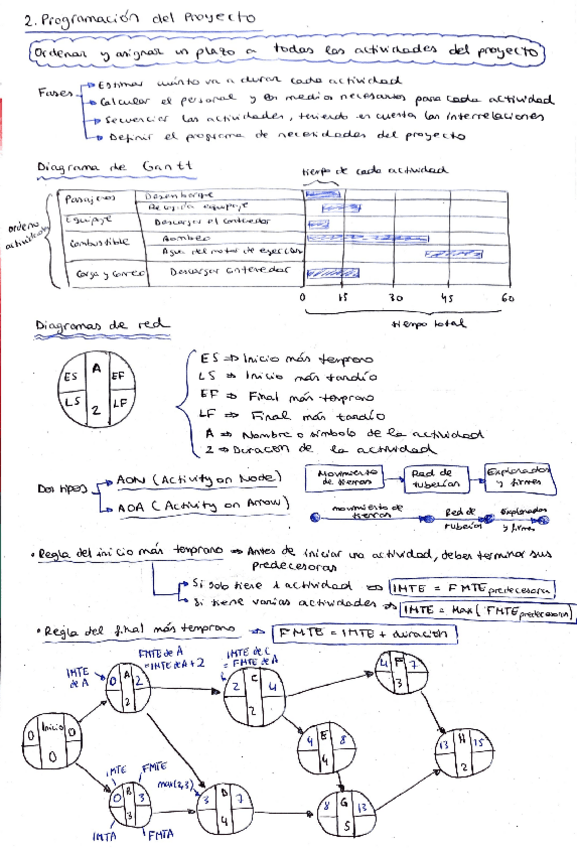 2. Programación del Proyecto
Ordenar y asignar un plazo a todas las actividades del proyecto
Fases
Estimar cuánto va a durar cada actividad
Calcular el personal y los medios necesarios para cada actividad
Secuenciar las actividades, teniendo en cuenta las interrelaciones
Definir el programa de necesidades del proyecto
Diagrama de Gantt
tiempo de cada actividad
orden actividades
Pasajeros Desembarque
Recogida equipaje
Equipaje Descargar el contenedor
Combustible Bombeo
Agua del motor de
Carga y Correo Descargar contenedor
0 15 30 45 60
tiempo total
Diagramas de red
ES A EF
LS 2 LF
ES ⇒ Inicio más temprano
LS ⇒ Inicio más tardío
EF ⇒ Final más temprano
LF ⇒ Final más tardío
A ⇒ Nombre o símbolo de la actividad
2 ⇒ Duracon de la actividad
Dos tipos
AON (Activity on Node)
Movimiento de tierras → Red de tuberías → Explanadas y firmes
AOA (Activity on Arrow)
movimiento de tierras Red de tuberías Explanadas y firmes
• Regla del inicio más temprano ⇒ Antes de iniciar una actividad, deben terminar sus
predecesoras
Si solo tiene 1 actividad ⇒ IMTE = FMTE predecesora
Si tiene varias actividades ⇒ IMTE = Max (FMTE predecesora)
• Regla del final más temprano ⇒ FMTE = IMTE + duración
IMTE de A
FMTE de A = IMTE de A + 2
IMTE de C = FMTE de A
0 A 2
2
2 C 4
2
4 F 7
3
0 Inicio 0
0 0
0
4 E 8
4
13 H 15
2
IMTE FMTE
max(2,3)
0 B 3
3
3 D 7
4
8 G 13
5
IMTA FMTA